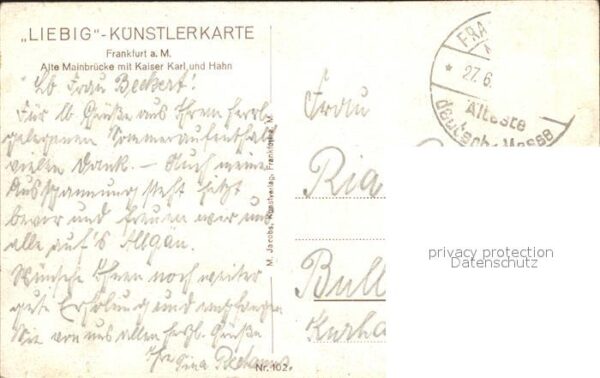 „LIEBIG“-KÜNSTLERKARTE
Frankfurt a. M.
Alte Mainbrücke mit Kaiser Karl und Hahn
Lb Frau Beckert!
Für lb Grüße aus Ihrem herrl.
gelegenen Sommeraufenthalt
vielen Dank. — Auch meine
Ausspannung steht jetzt
bevor und freuen wir uns
alle auf's Allgäu.
Wünsche Ihnen noch weiter
gute Erholung und empfangen
Sie von uns allen herzl. Grüße
Ihre Tina
Nr. 102
M. Jacobs, Kunstverlag, Frankfurt a. M.
FRA
* 27.6.
Älteste
deutsche Messe
Frau
Ria
Bull
Kurha
privacy protection
Datenschutz